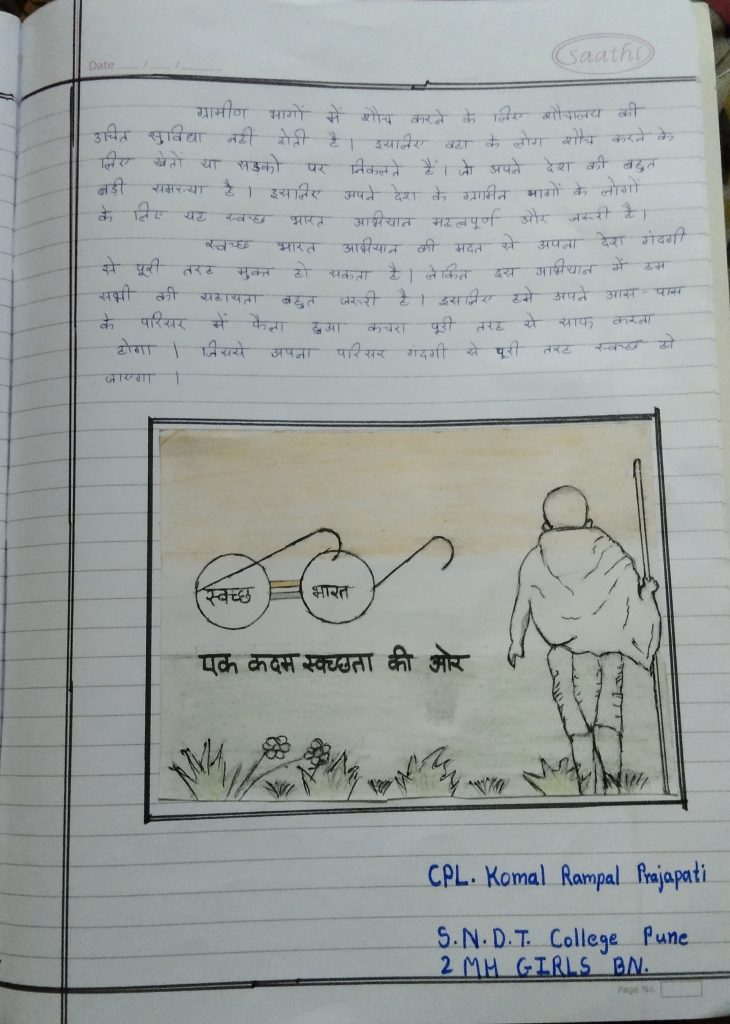 Date / /
Saathi
ग्रामीण भागों में शौच करने के लिए शौचालय की
उचित सुविधा नही होती है । इसलिए वहा के लोग शौच करने के
लिए खेतो या सडको पर निकलते हैं। जो अपने देश की बहुत
बडी समस्या है । इसलिए अपने देश के ग्रामिन भागों के लोगों
के लिए यह स्वच्छ भारत अभियान महत्वपूर्ण और जरुरी है ।
स्वच्छ भारत अभियान की मदत से अपना देश गंदगी
से पूरी तरह मुक्त हो सकता है । लेकिन इस अभियान में हम
सभी की सहायता बहुत जरुरी है । इसलिए हमे अपने आस-पास
के परिसर में फैला हुआ कचरा पूरी तरह से साफ करना
होगा । जिससे अपना परिसर गंदगी से पूरी तरह स्वच्छ हो
जाएगा ।
स्वच्छ भारत
एक कदम स्वच्छता की ओर
CPL. Komal Rampal Prajapati
S.N.D.T. College Pune
2 MH GIRLS BN.
Page No.